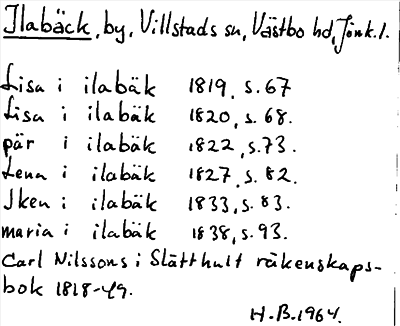 Ilabäck, by, Villstads sn, Västbo hd, Jönk. l.
Lisa i ilabäk 1819, s. 67
Lisa i ilabäk 1820, s. 68.
pär i ilabäk 1822, s. 73.
Lena i ilabäk 1827, s. 82.
Iken i ilabäk 1833, s. 83.
maria i ilabäk 1838, s. 93.
Carl Nilssons i Slätthult räkenskaps-
bok 1818-49.
H. B. 1964.